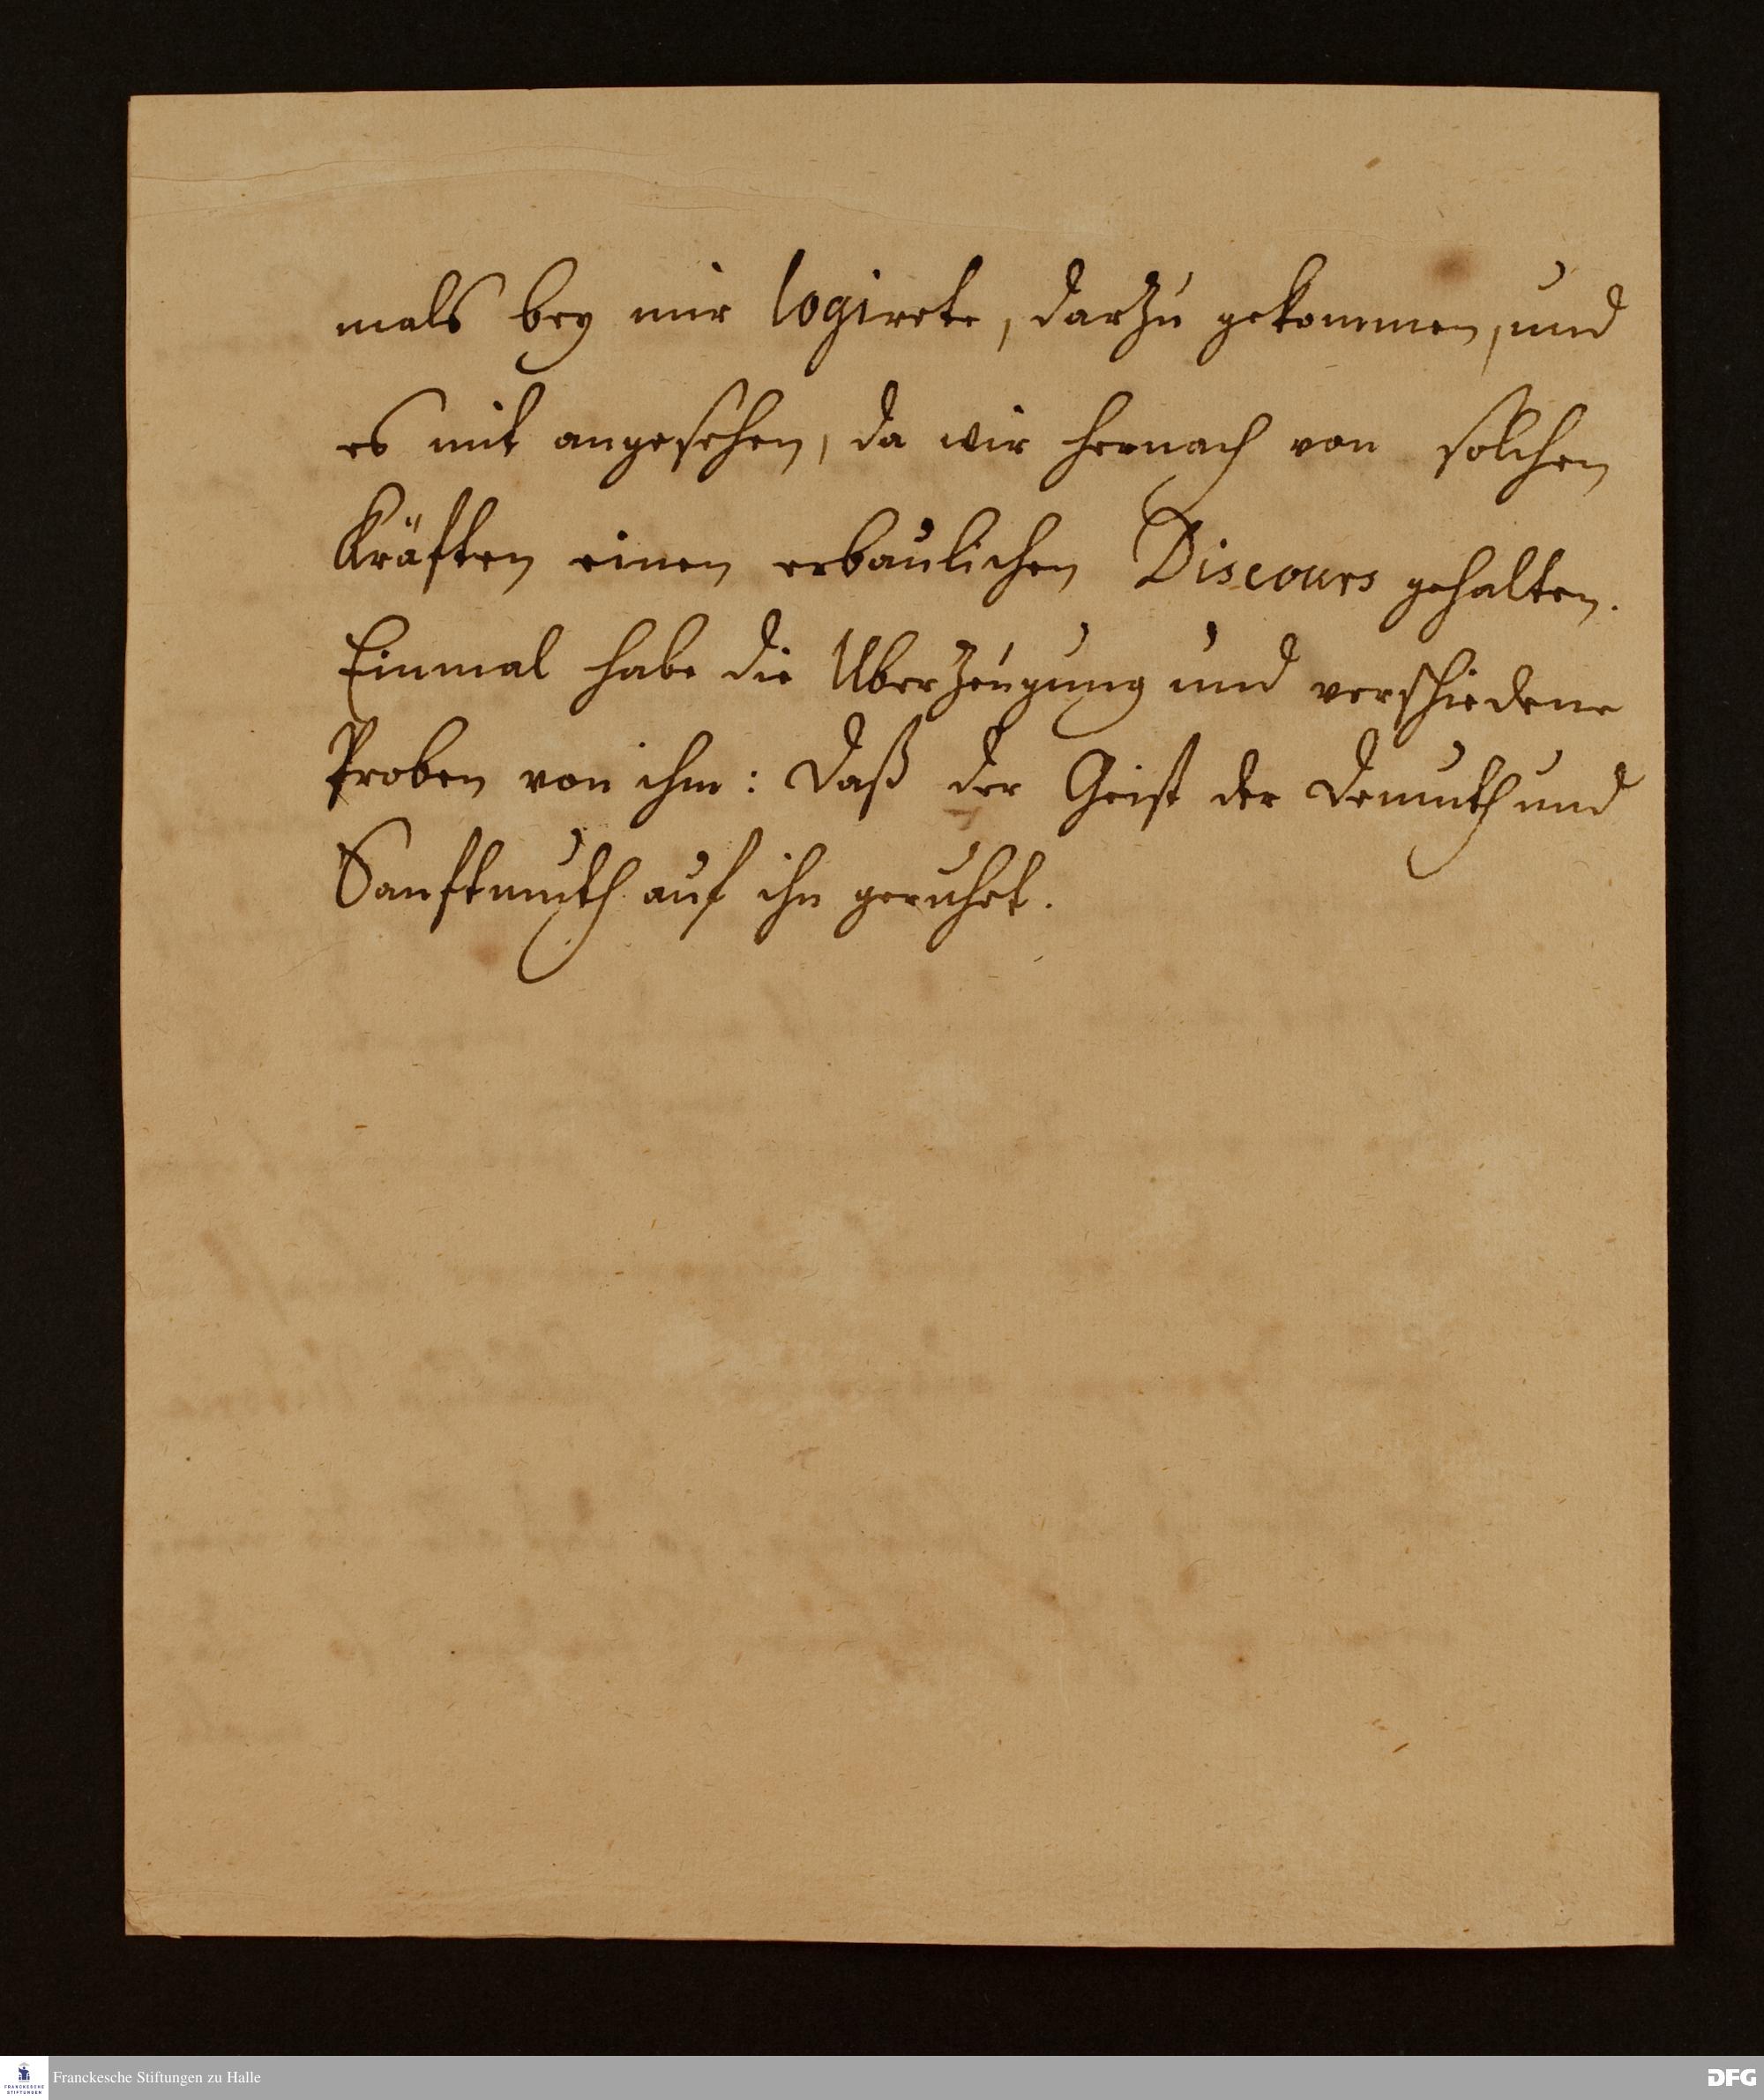 mals bey mir logirete, darzu gekommen, und
es mit angesehen, da wir hernach von solchen
Kräften einen erbaulichen Discours gehalten.
Einmal habe die Uberzeugung und verschiedene
Proben von ihm: daß der Geist der Demuth und
Sanftmuth auf ihn geruhet.
FRANCKESCHE
STIFTUNGEN
Franckesche Stiftungen zu Halle
DFG